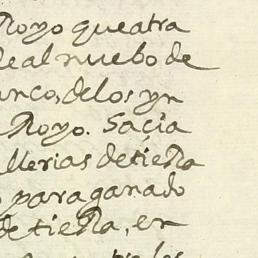 Royo queatra
Real nuebo de
anco, delos yn
Royo. Saçia
allerias detieRa
paraganado
detieRa, en